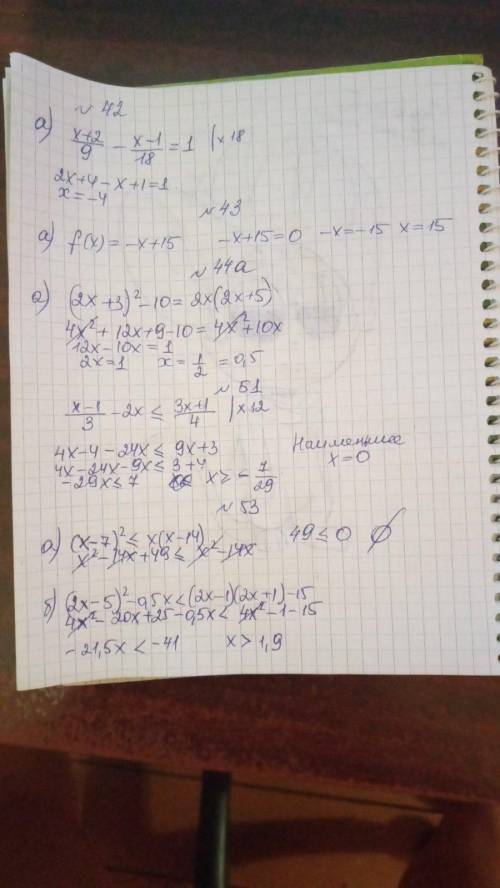 № 42
а) (x+2)/9 − (x−1)/18 = 1 |×18
2x+4−x+1=1
x=−4
№ 43
а) f(x) = −x+15   −x+15=0   −x=−15   x=15
№ 44а
а) (2x+3)²−10=2x(2x+5)
4x²+12x+9−10=4x²+10x
12x−10x=1
2x=1   x=1/2=0,5
№ 51
(x−1)/3 − 2x ≤ (3x+1)/4 |×12
4x−4−24x≤9x+3
4x−24x−9x≤3+4
−29x≤7   x≥−7/29
Наименьшее
x=0
№ 53
а) (x−7)²≤x(x−14)   49≤0   ∅
x²−14x+49≤x²−14x
б) (2x−5)²−0,5x<(2x−1)(2x+1)−15
4x²−20x+25−0,5x<4x²−1−15
−21,5x<−41   x>1,9